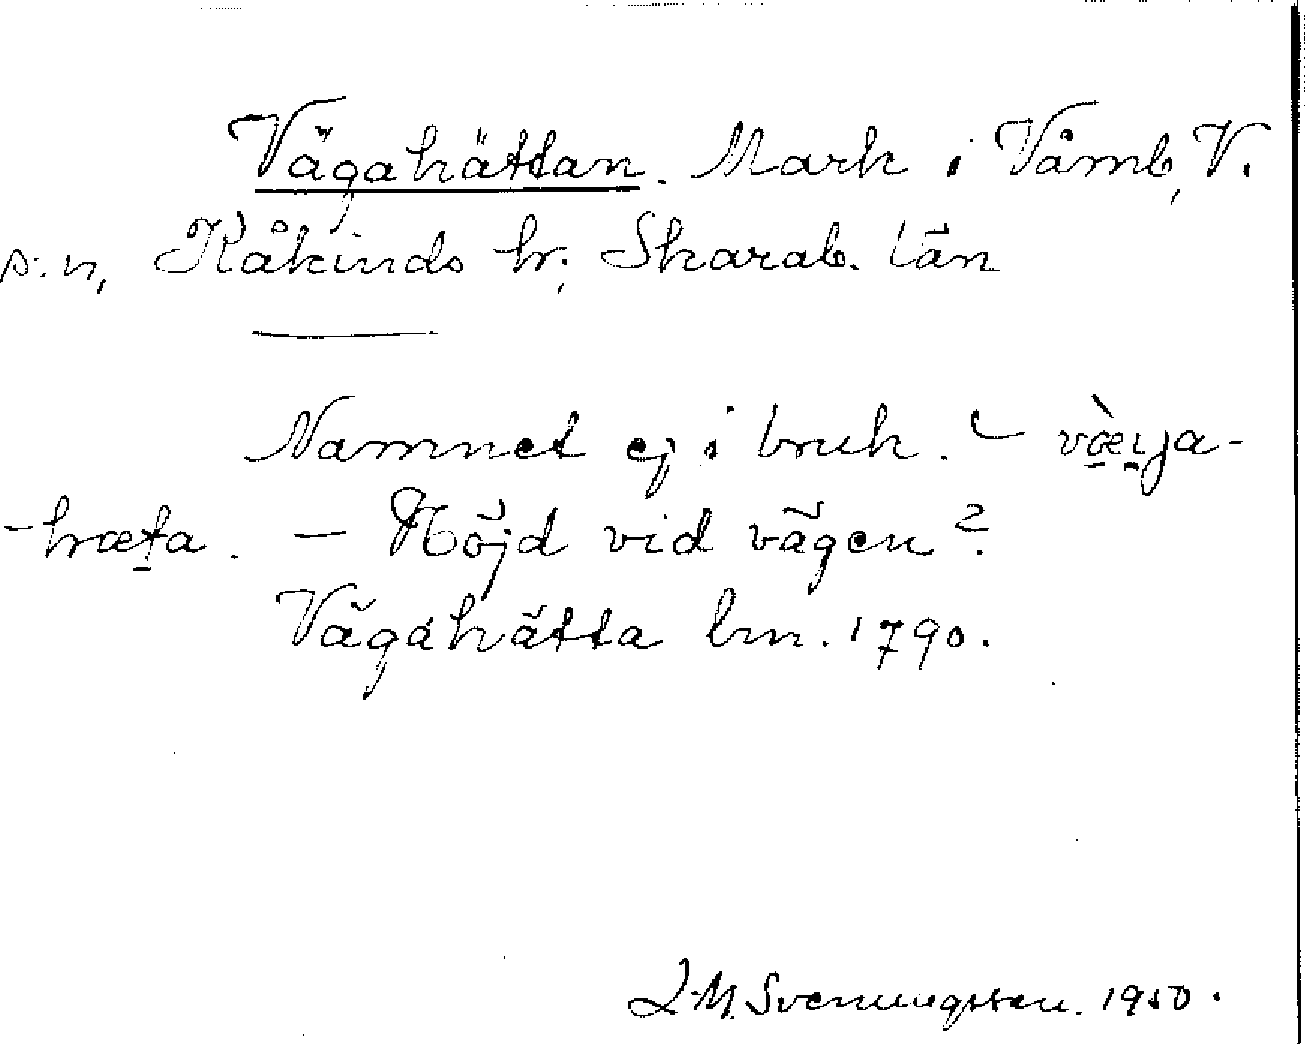 Vägahättan. Mark i Våmb, V.
s:n, Kåkinds hr; Skarab. län
Namnet ej i bruk. – væ̀ɪja-
-hæta. – Höjd vid vägen?
Vägahätta lm. 1790.
L.M. Svenungsson. 1950.